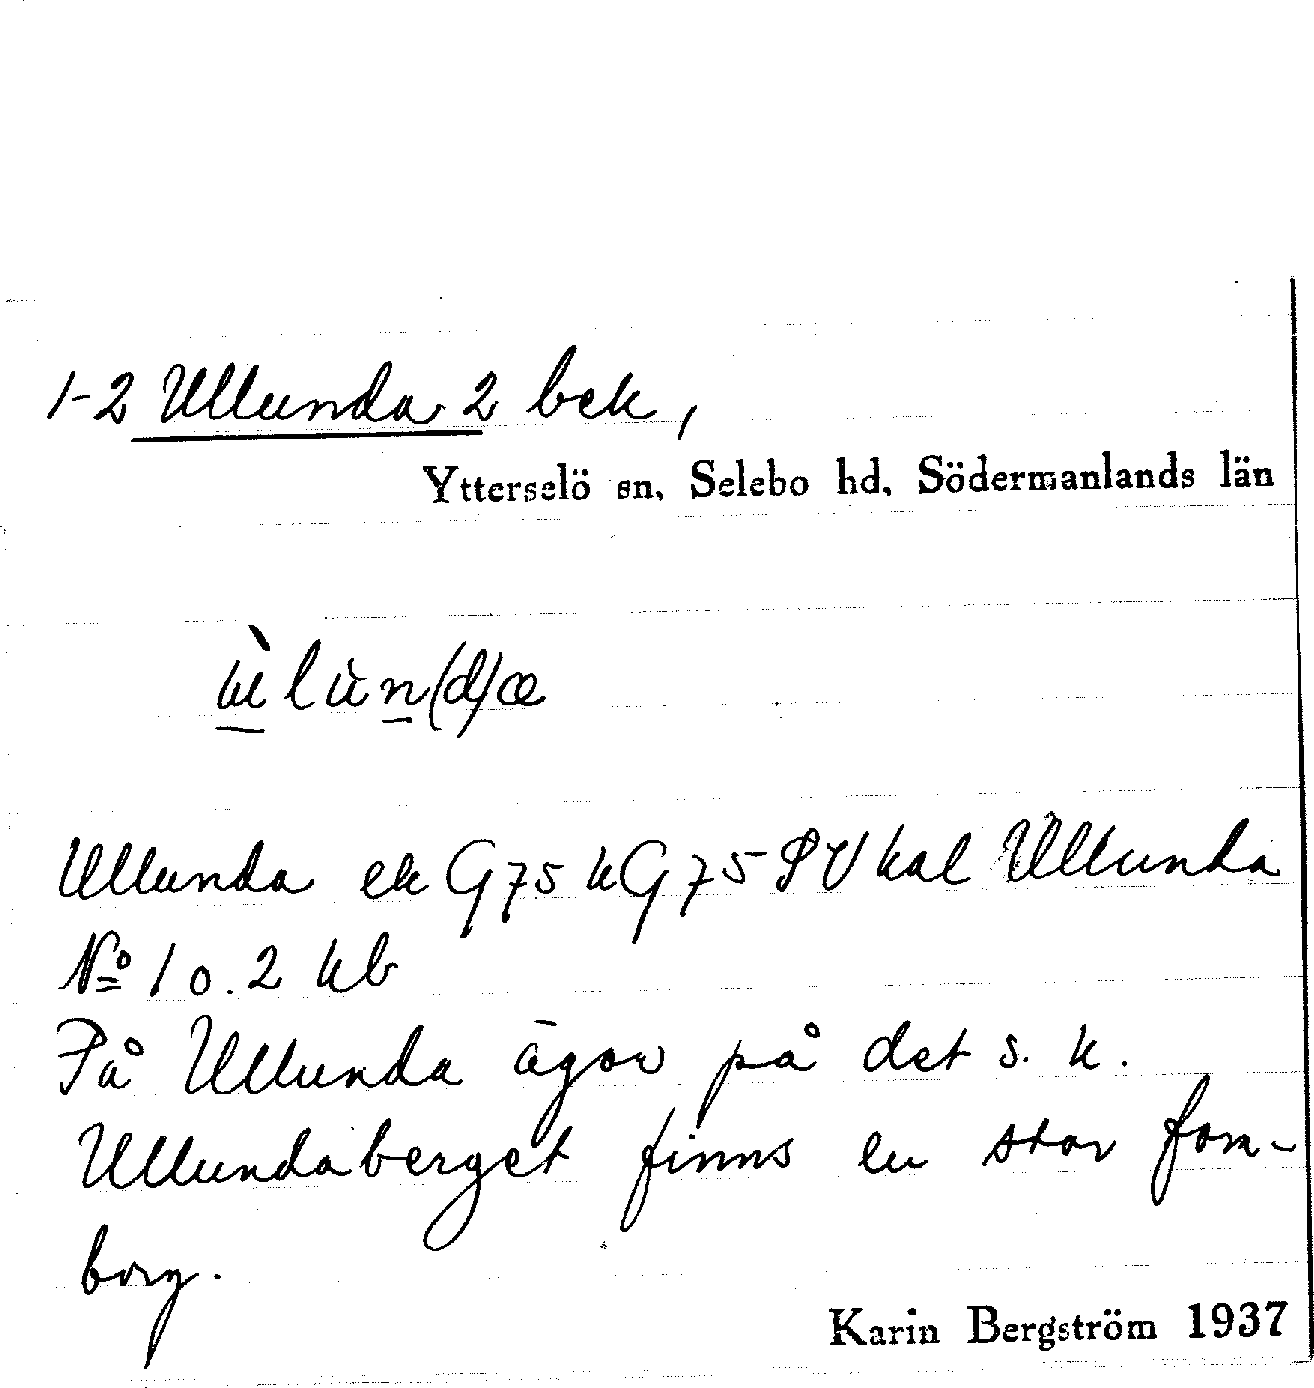 1-2 Ullunda 2 bek,
Ytterselö sn, Selebo hd, Södermanlands län
ùlùn(d)a
Ullunda ek G75 kG75 SV kal Ullunda
No 1 o. 2 kb
På Ullunda ägor på det s. k.
Ullundaberget finns en stor forn-
borg.
Karin Bergström 1937